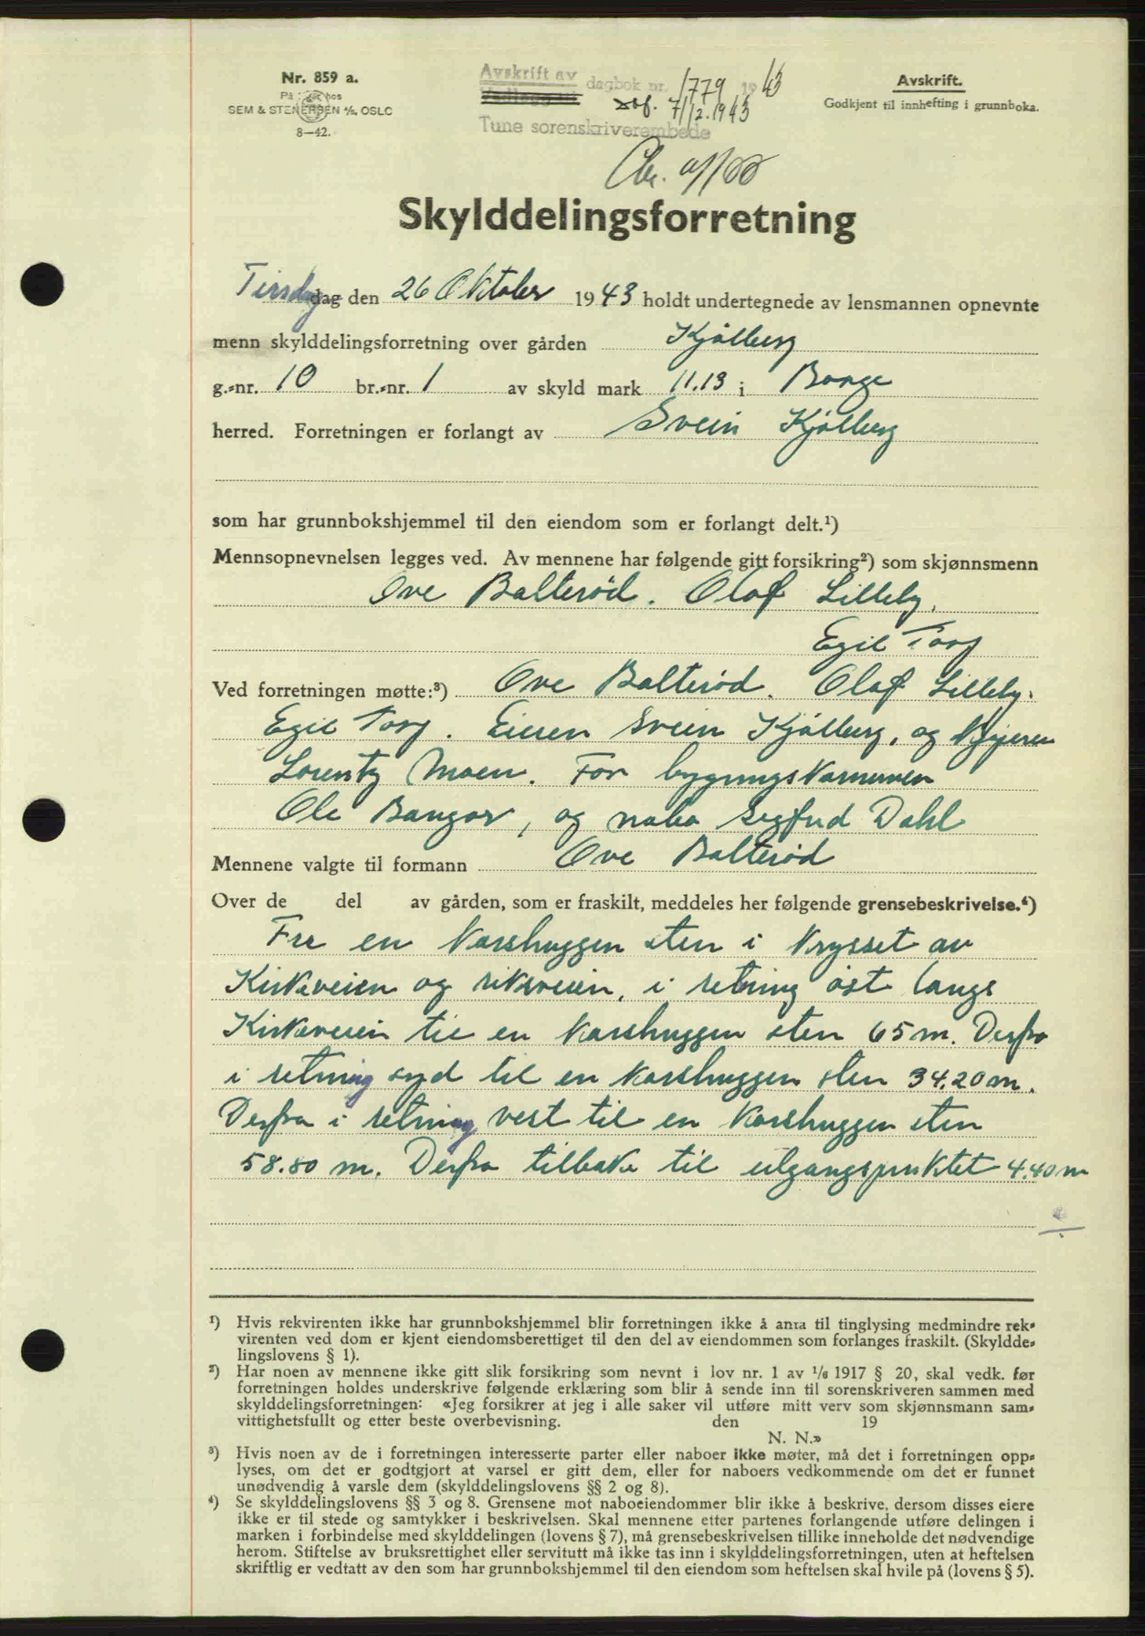 Nr. 859 a.
SEM & STENERSEN A/S, OSLO
8—42.
Avskrift av dagbok nr. 1779 1943
7/12.1943
Tune sorenskriverembede
Avskrift.
Godkjent til innhefting i grunnboka.
Skylddelingsforretning
Tirsdag den 26 Oktober 1943 holdt undertegnede av lensmannen opnevnte
menn skylddelingsforretning over gården Kjølberg
g.-nr. 10 br.-nr. 1 av skyld mark 11.13 i Borge
herred. Forretningen er forlangt av Svein Kjølberg
som har grunnbokshjemmel til den eiendom som er forlangt delt.¹)
Mennsopnevnelsen legges ved. Av mennene har følgende gitt forsikring²) som skjønnsmenn
Ove Balterød. Olaf Lilleby.
Egil Torp
Ved forretningen møtte:³) Ove Balterød. Olaf Lilleby.
Egil Torp. Eieren Svein Kjølberg, og kjøperen
Lorentz Moen. For bygningskommunen
Ole Bangor, og nabo Sigfred Dahl
Mennene valgte til formann Ove Balterød
Over de del av gården, som er fraskilt, meddeles her følgende grensebeskrivelse.⁴)
Fra en korshuggen sten i krysset av
Kirkeveien og riksveien, i retning øst langs
Kirkeveien til en korshuggen sten 65 m. Derfra
i retning syd til en korshuggen sten 34.20 m.
Derfra i retning vest til en korshuggen sten
58.80 m. Derfra tilbake til utgangspunktet 4.40 m
¹) Hvis rekvirenten ikke har grunnbokshjemmel blir forretningen ikke å anta til tinglysing medmindre rek-
virenten ved dom er kjent eiendomsberettiget til den del av eiendommen som forlanges fraskilt. (Skyldde-
lingslovens § 1).
²) Har noen av mennene ikke gitt slik forsikring som nevnt i lov nr. 1 av 1/6 1917 § 20, skal vedk. før
forretningen holdes underskrive følgende erklæring som blir å sende inn til sorenskriveren sammen med
skylddelingsforretningen: «Jeg forsikrer at jeg i alle saker vil utføre mitt verv som skjønnsmann sam-
vittighetsfullt og etter beste overbevisning. den 19
N. N.»
³) Hvis noen av de i forretningen interesserte parter eller naboer ikke møter, må det i forretningen opp-
lyses, om det er godtgjort at varsel er gitt dem, eller for naboers vedkommende om det er funnet
unødvendig å varsle dem (skylddelingslovens §§ 2 og 8).
⁴) Se skylddelingslovens §§ 3 og 8. Grensene mot naboeiendommer blir ikke å beskrive, dersom disses eiere
ikke er til stede og samtykker i beskrivelsen. Skal mennene etter partenes forlangende utføre delingen i
marken i forbindelse med skylddelingen (lovens § 7), må grensebeskrivelsen tillike inneholde det nødvendige
herom. Stiftelse av bruksrettighet eller servitutt må ikke tas inn i skylddelingsforretningen, uten at heftelsen
skriftlig er vedtatt av den som har grunnbokshjemmel til den eiendom som heftelsen skal hvile på (lovens § 5).